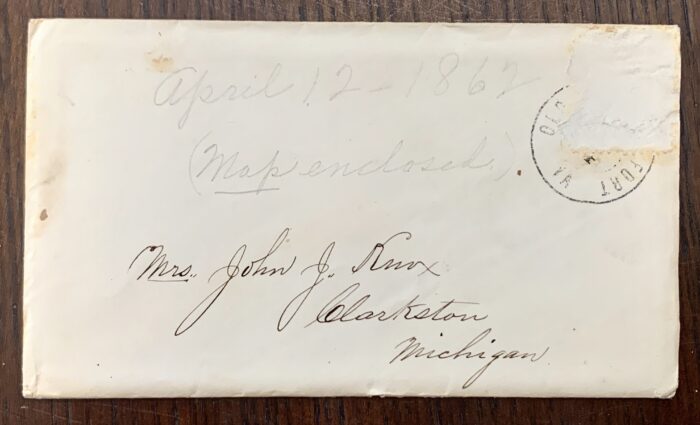 April 12 - 1862
(Map enclosed.)
OLD
FORT
VA
Mrs. John J. Knox
Clarkston
Michigan